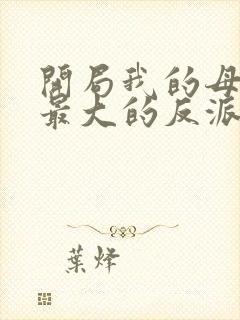 開局我的母
最大的反派
葉烽